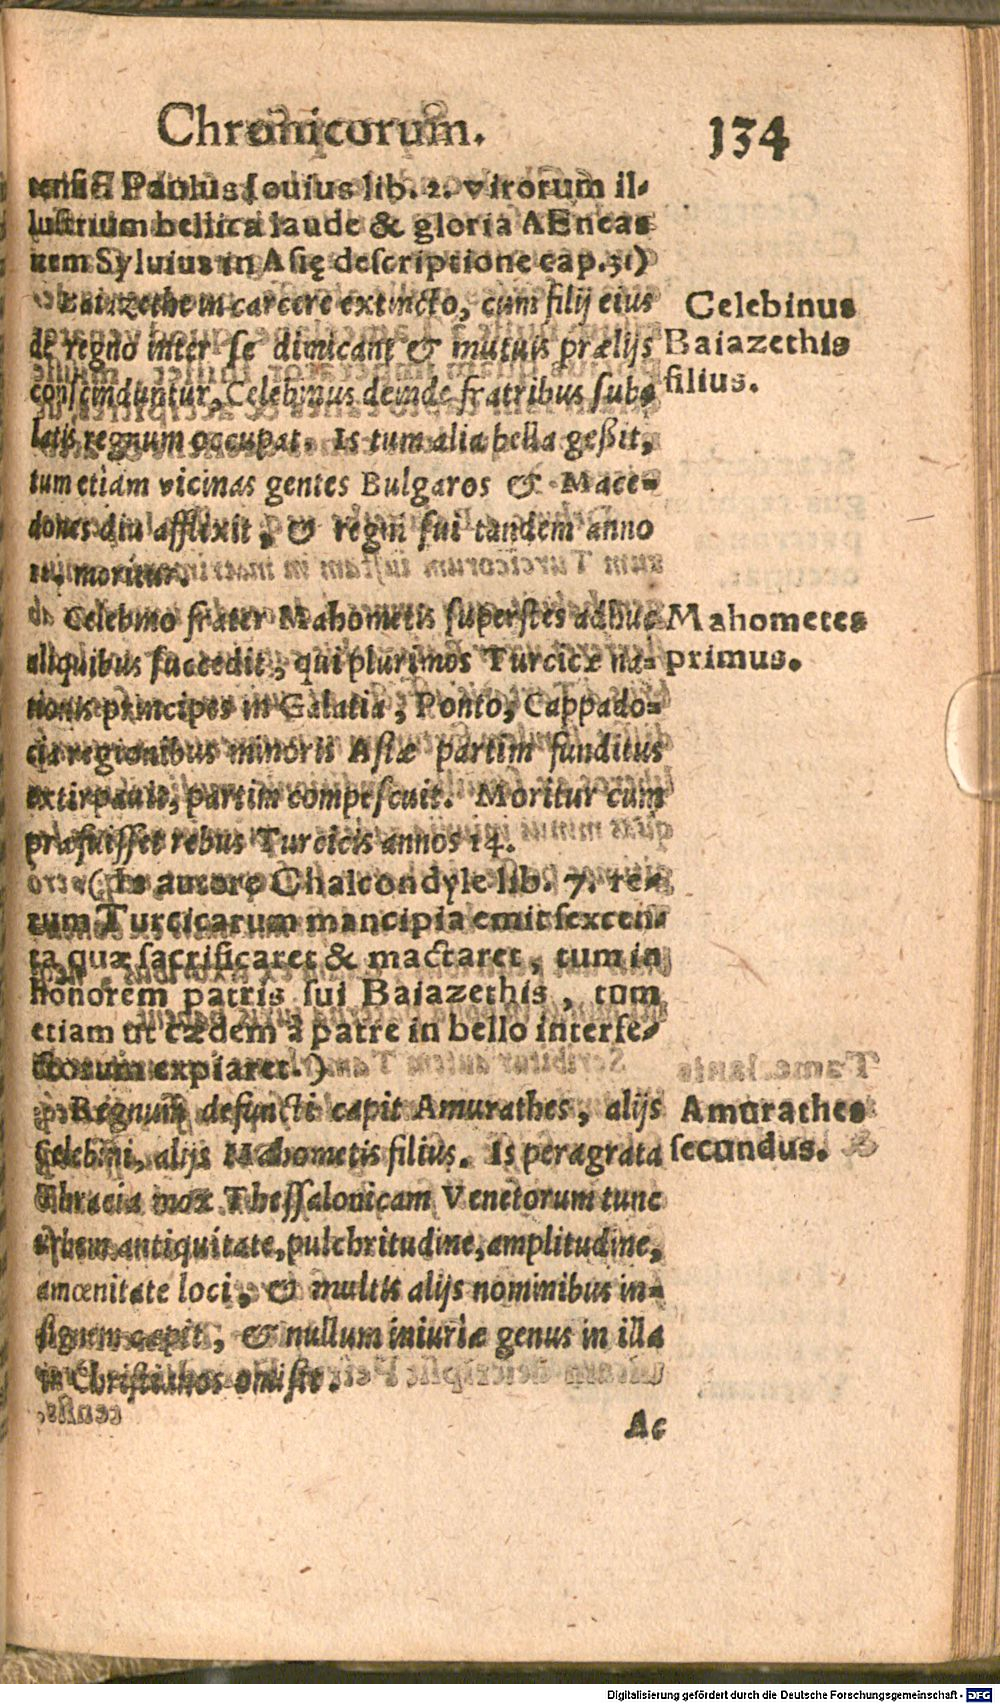 Chronicorum. 134
Paulus Iouius lib. 2. virorum il-
lustrium bellica laude & gloria AEneas
item Syluius in Asię descriptione cap. 31)
Baiazethe in carcere extincto, cum filij eius
de regno inter se dimicant & mutuis prælijs
conscinduntur, Celebinus deinde fratribus sub-
latis regnum occupat. Is tum alia bella geßit,
tum etiam vicinas gentes Bulgaros & Mace-
dones diu afflixit, & regni sui tandem anno
moritur.
Celebinus
Baiazethis
filius.
Celebino frater Mahometis superstes adhuc
aliquibus succedit, qui plurimos Turcicæ na-
tionis principes in Galatia, Ponto, Cappado-
cia regionibus minoris Asiæ partim funditus
extirpauit, partim compescuit. Moritur cum
præfuisset rebus Turcicis annos 14.
Mahometes
primus.
(Is autore Chalcondyle lib. 7. re-
rum Turcicarum mancipia emit sexcen-
ta quæ sacrificaret & mactaret, tum in
honorem patris sui Baiazethis, tum
etiam ut cædem à patre in bello interfe-
ctorum expiaret.)
Regnum defuncti capit Amurathes, alijs
Celebini, alijs Mahometis filius. Is peragrata
Thracia mox Thessalonicam Venetorum tunc
vrbem antiquitate, pulchritudine, amplitudine,
amœnitate loci, & multis alijs nominibus in-
signem cæpit, & nullum iniuriæ genus in illa
in Christianos omisit.
Amurathes
secundus.
Ac
Digitalisierung gefördert durch die Deutsche Forschungsgemeinschaft - DFG